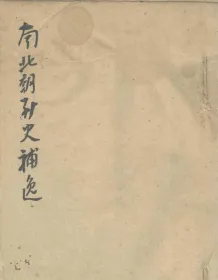 南北朝刑史補逸